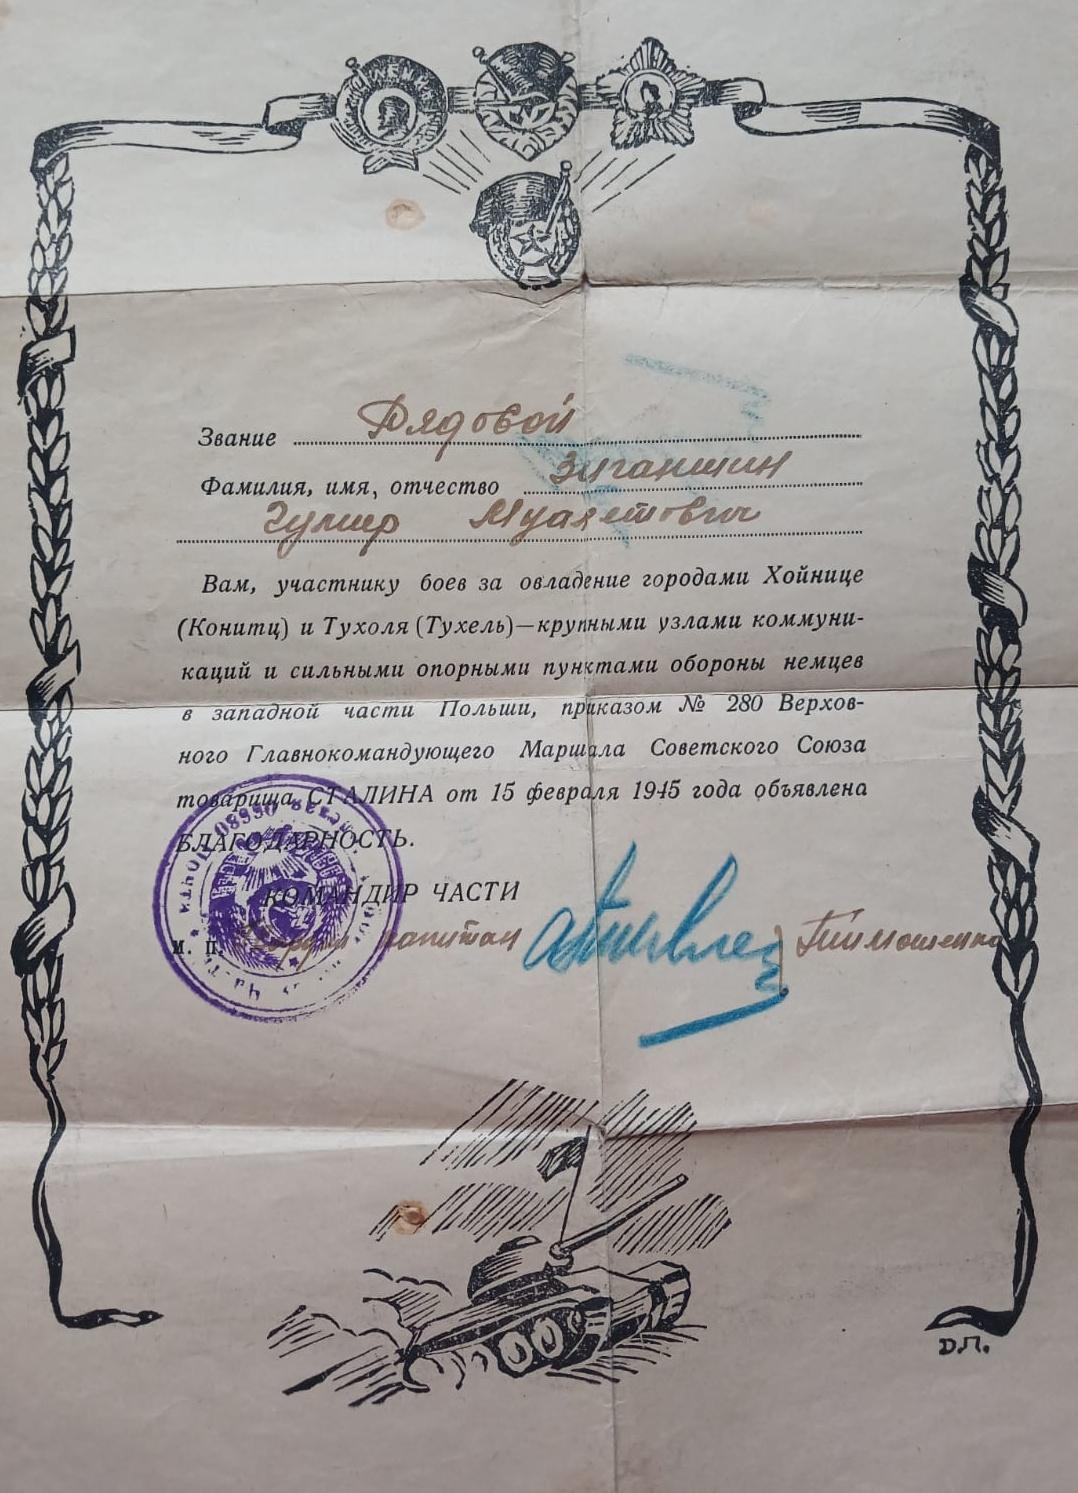 Звание Рядовой
Фамилия, имя, отчество Зиганшин
Гумер Мухаметович
Вам, участнику боев за овладение городами Хойнице
(Конитц) и Тухоля (Тухель)—крупными узлами коммуни-
каций и сильными опорными пунктами обороны немцев
в западной части Польши, приказом № 280 Верхов-
ного Главнокомандующего Маршала Советского Союза
товарища СТАЛИНА от 15 февраля 1945 года объявлена
БЛАГОДАРНОСТЬ.
КОМАНДИР ЧАСТИ
М. П. Гвардии капитан Тимошенко
Д.П.